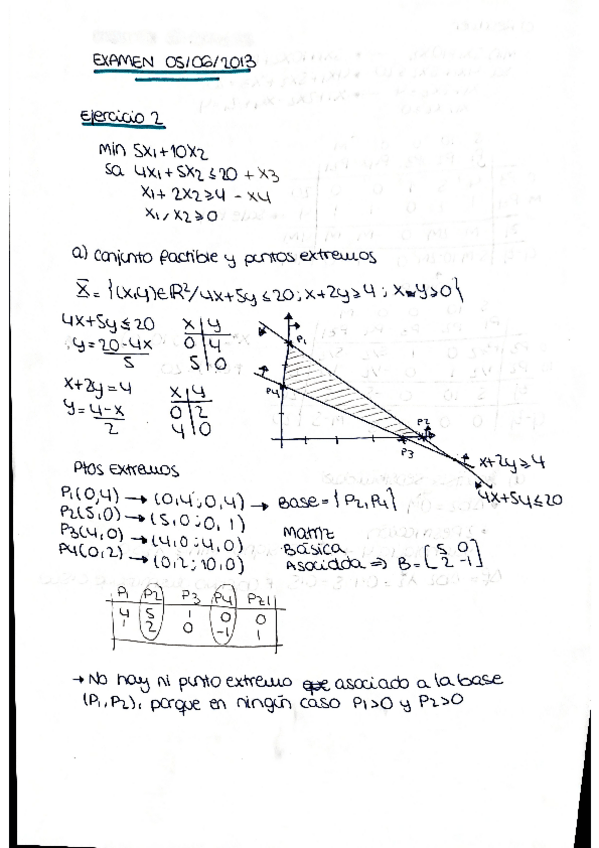 EXAMEN 05/06/2013
Ejercicio 2
Min 5x1+10x2
sa 4x1+5x2≤20+x3
x1+2x2≥4-x4
x1,x2≥0
a) conjunto factible y puntos extremos
X={(x,y)∈R²/4x+5y≤20; x+2y≥4; x,y≥0}
4x+5y≤20
y=20-4x/5
x|y
0|4
5|0
x+2y=4
y=4-x/2
x|y
0|2
4|0
P1
P4
P2
P3
x+2y≥4
4x+5y≤20
Ptos Extremos
P1(0,4)→(0,4;0,4)→Base={P2,P4}
P2(5,0)→(5,0;0,1)
P3(4,0)→(4,0;4,0)
P4(0,2)→(0,2;10,0)
Matriz
Básica
Asociada⇒B=[5 0
2 -1]
P1 P2 P3 P4 Pz1
4 5 1 0 0
1 2 0 -1 1
→No hay ni punto extremo asociado a la base
(P1,P2), porque en ningún caso P1>0 y P2>0